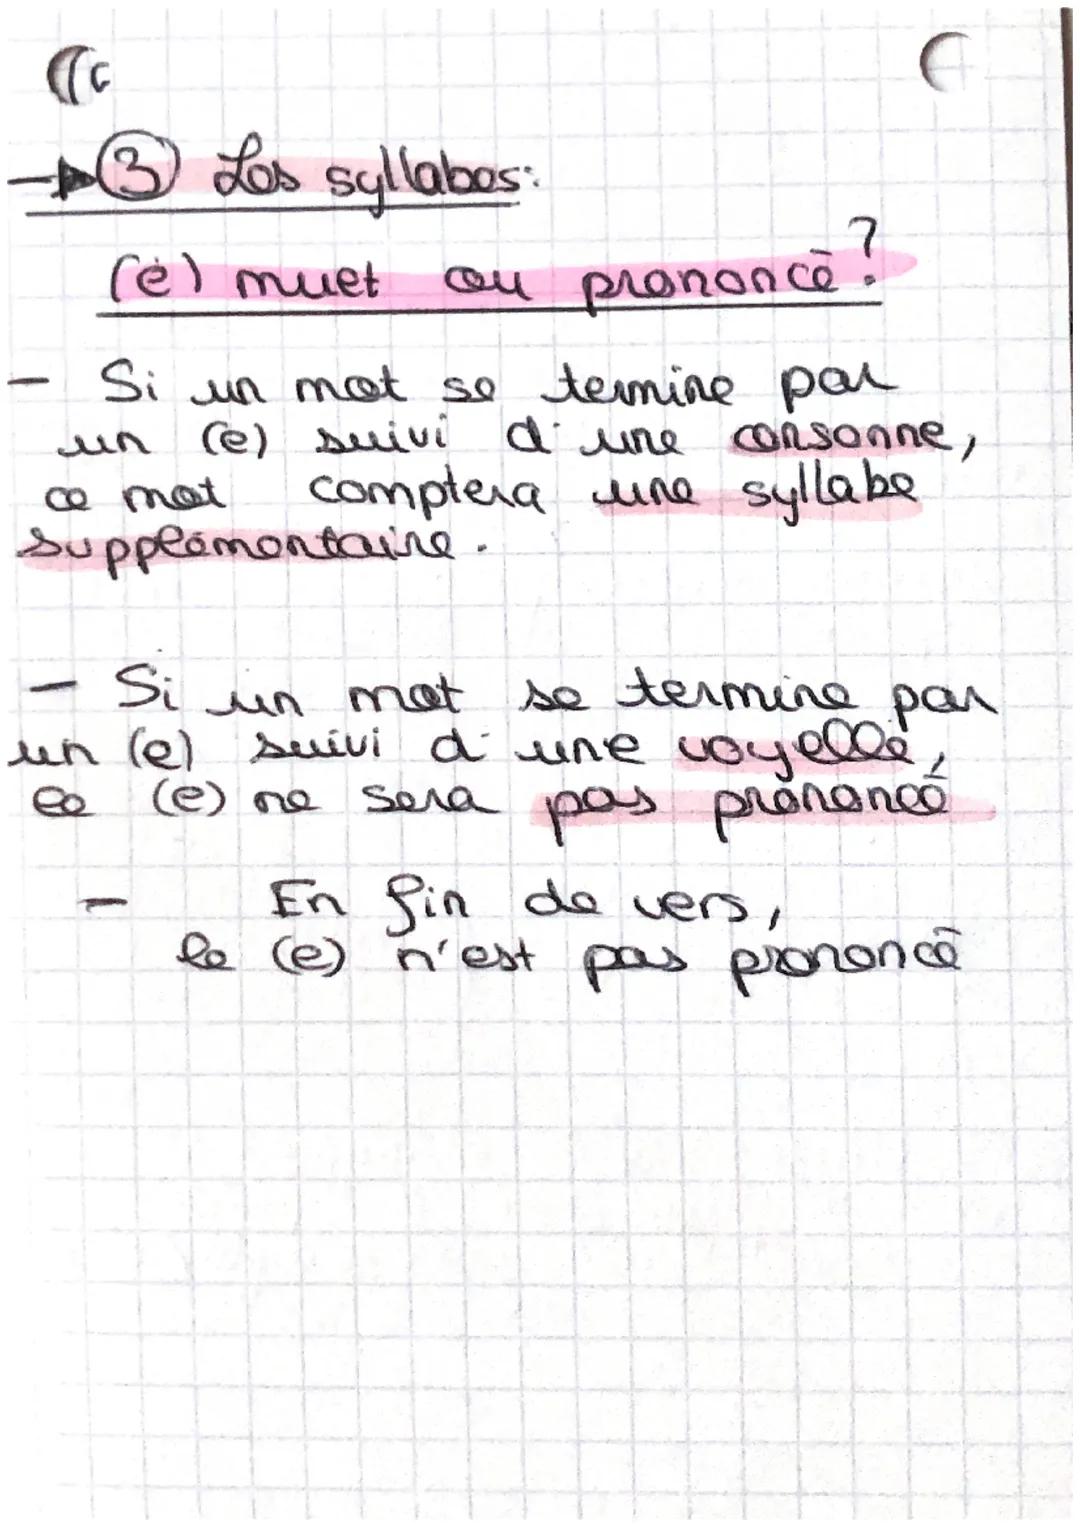 → ③ Les syllabes:
(e) muet ou prononcé ?
- Si un mot se termine par
un (e) suivi d'une consonne,
ce mot comptera une syllabe
supplémentaire.
- Si un mot se termine par
un (e) suivi d'une voyelle,
le (e) ne sera pas prononcé
- En fin de vers,
le (e) n'est pas prononcé